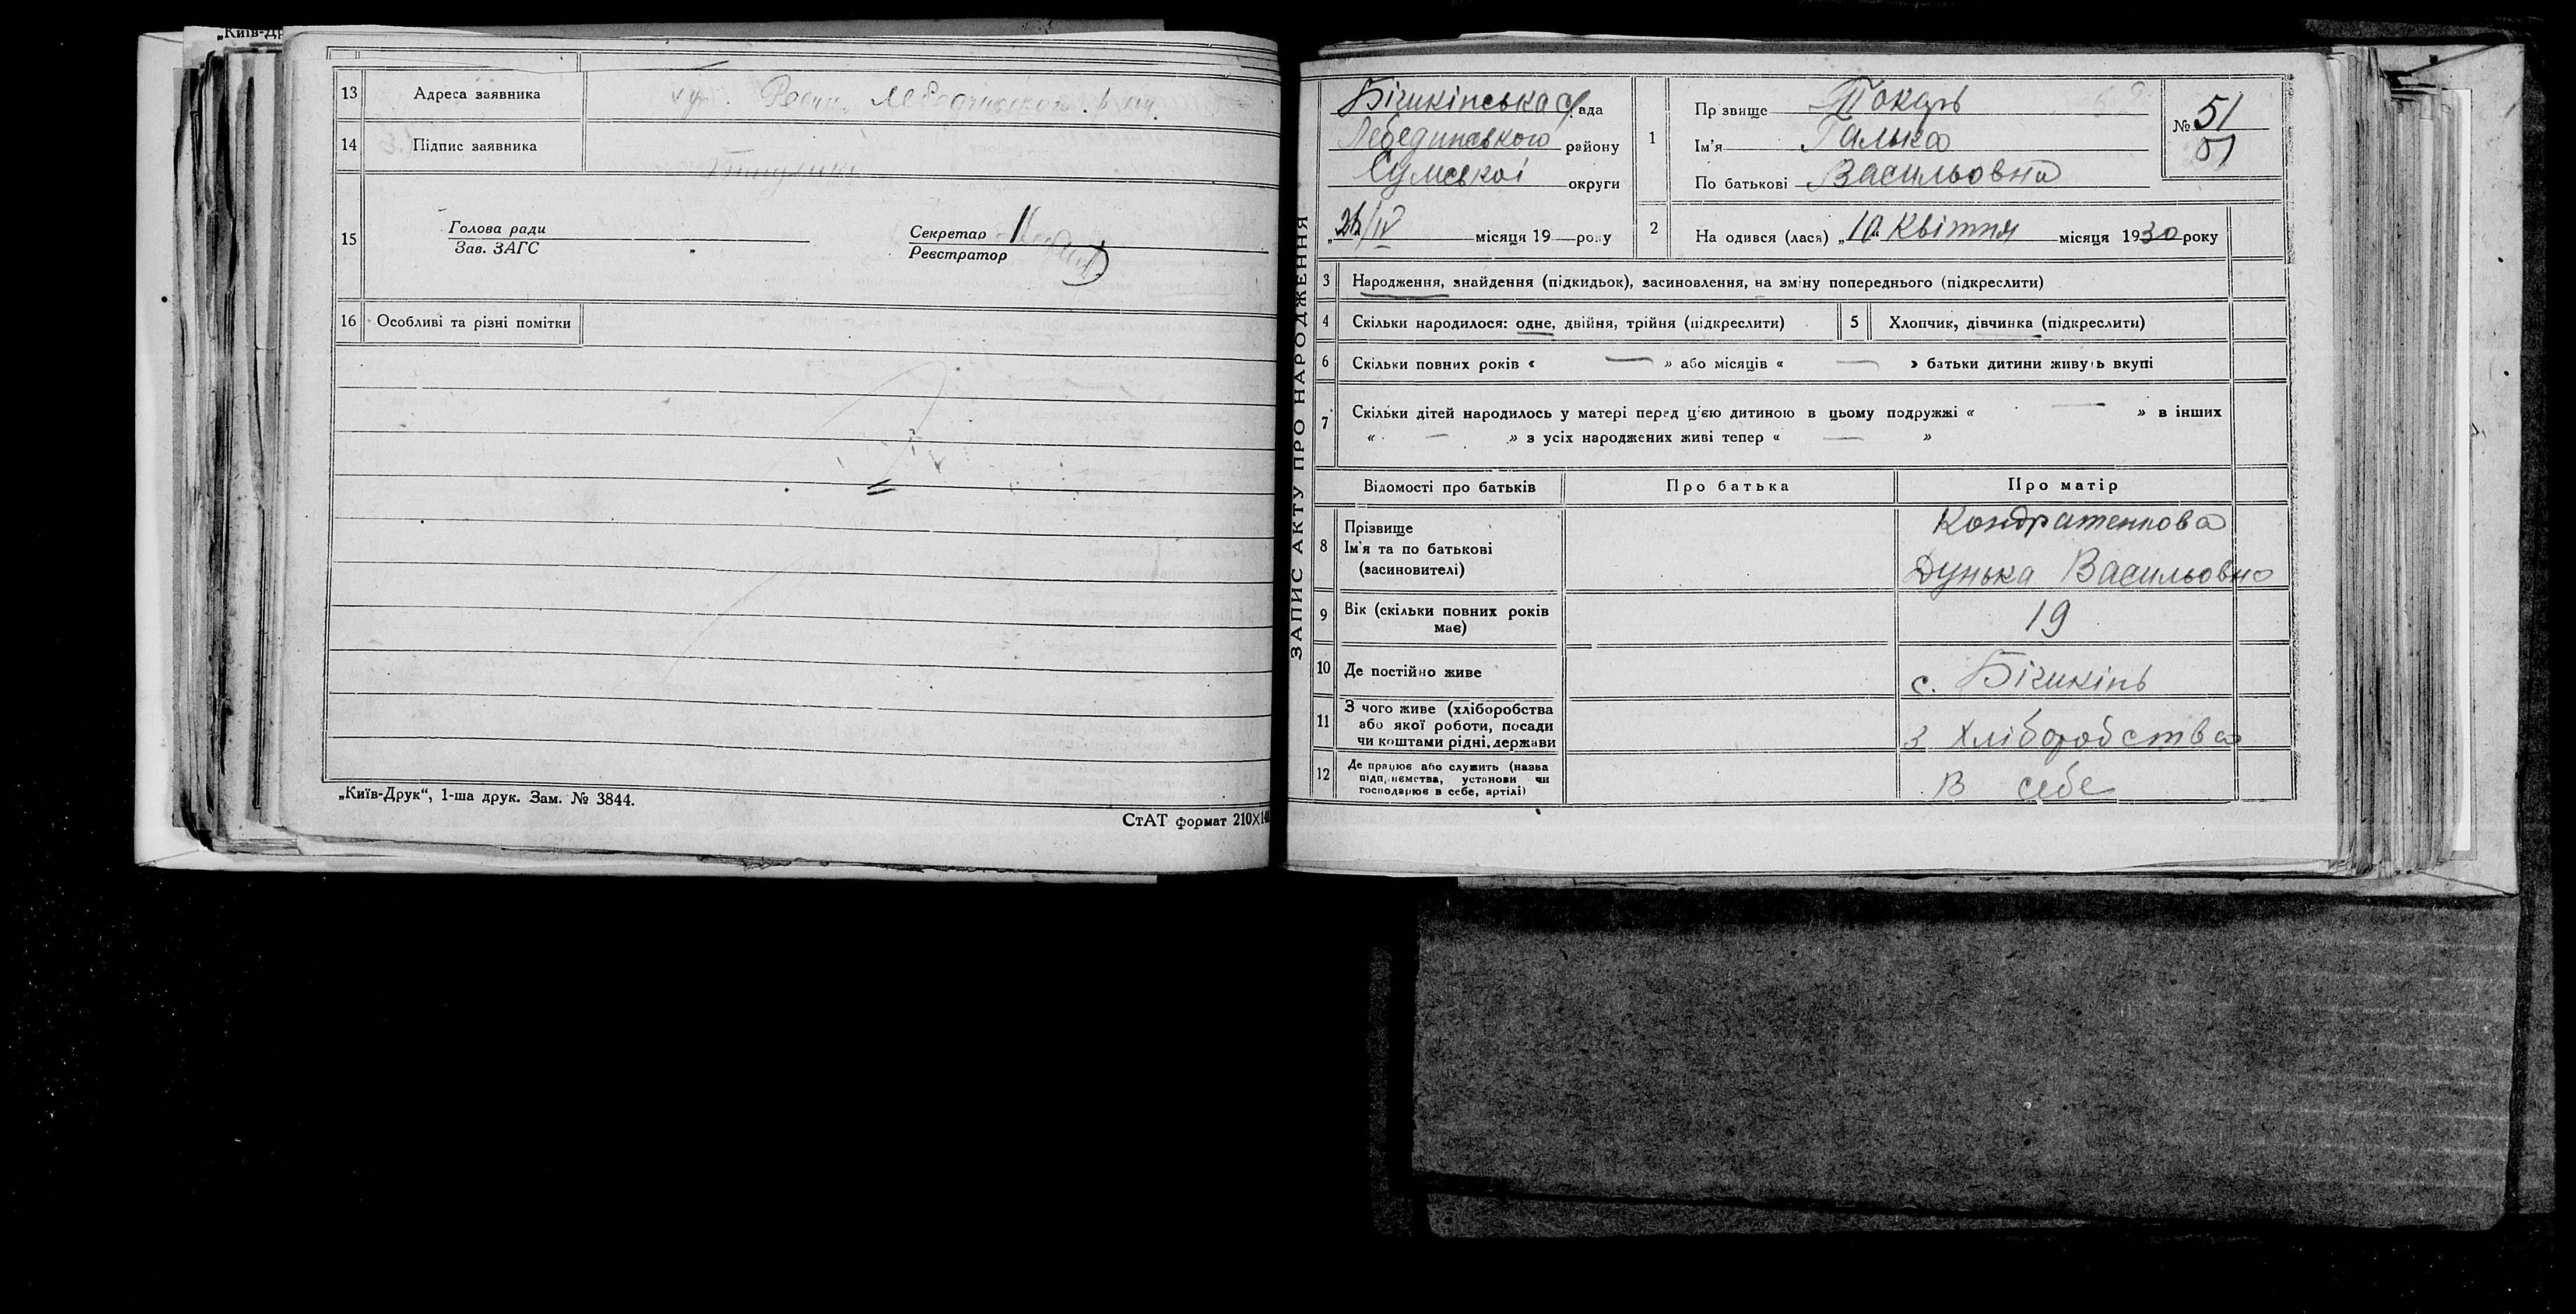 „Київ-Др
13 Адреса заявника
14 Підпис заявника
15 Голова ради
Зав. ЗАГС
Секретар
Реєстратор
16 Особливі та різні помітки
„Київ-Друк“, 1-ша друк. Зам. № 3844.
СтАТ формат 210×14
ЗАПИС АКТУ ПРО НАРОДЖЕННЯ
Бішкінська с/рада
Лебединського району
Сумської округи
місяця 19 року
1 Прзвище Токарь
Ім'я Галька
По батькові Васильовна
№ 51
51
2 На одився (лася) „10“ Квітня місяця 1930 року
3 Народження, знайдення (підкидьок), засиновлення, на зміну попереднього (підкреслити)
4 Скільки народилося: одне, двійня, трійня (підкреслити) 5 Хлопчик, дівчинка (підкреслити)
6 Скільки повних років « — » або місяців « — » батьки дитини живуь вкупі
7 Скільки дітей народилось у матері перед цією дитиною в цьому подружжі « — » в інших
« — » з усіх народжених живі тепер « — »
Відомості про батьків Про батька Про матір
8 Прізвище
Ім'я та по батькові
(засиновителі)
Кондратенкова
Дунька Васильовна
9 Вік (скільки повних років
має)
19
10 Де постійно живе с. Бішкінь
11 З чого живе (хліборобства
або якої роботи, посади
чи коштами рідні, держави
з хліборобства
12 Де працює або служить (назва
підп, иємства, установи чи
господарює в себе, артілі)
В себе